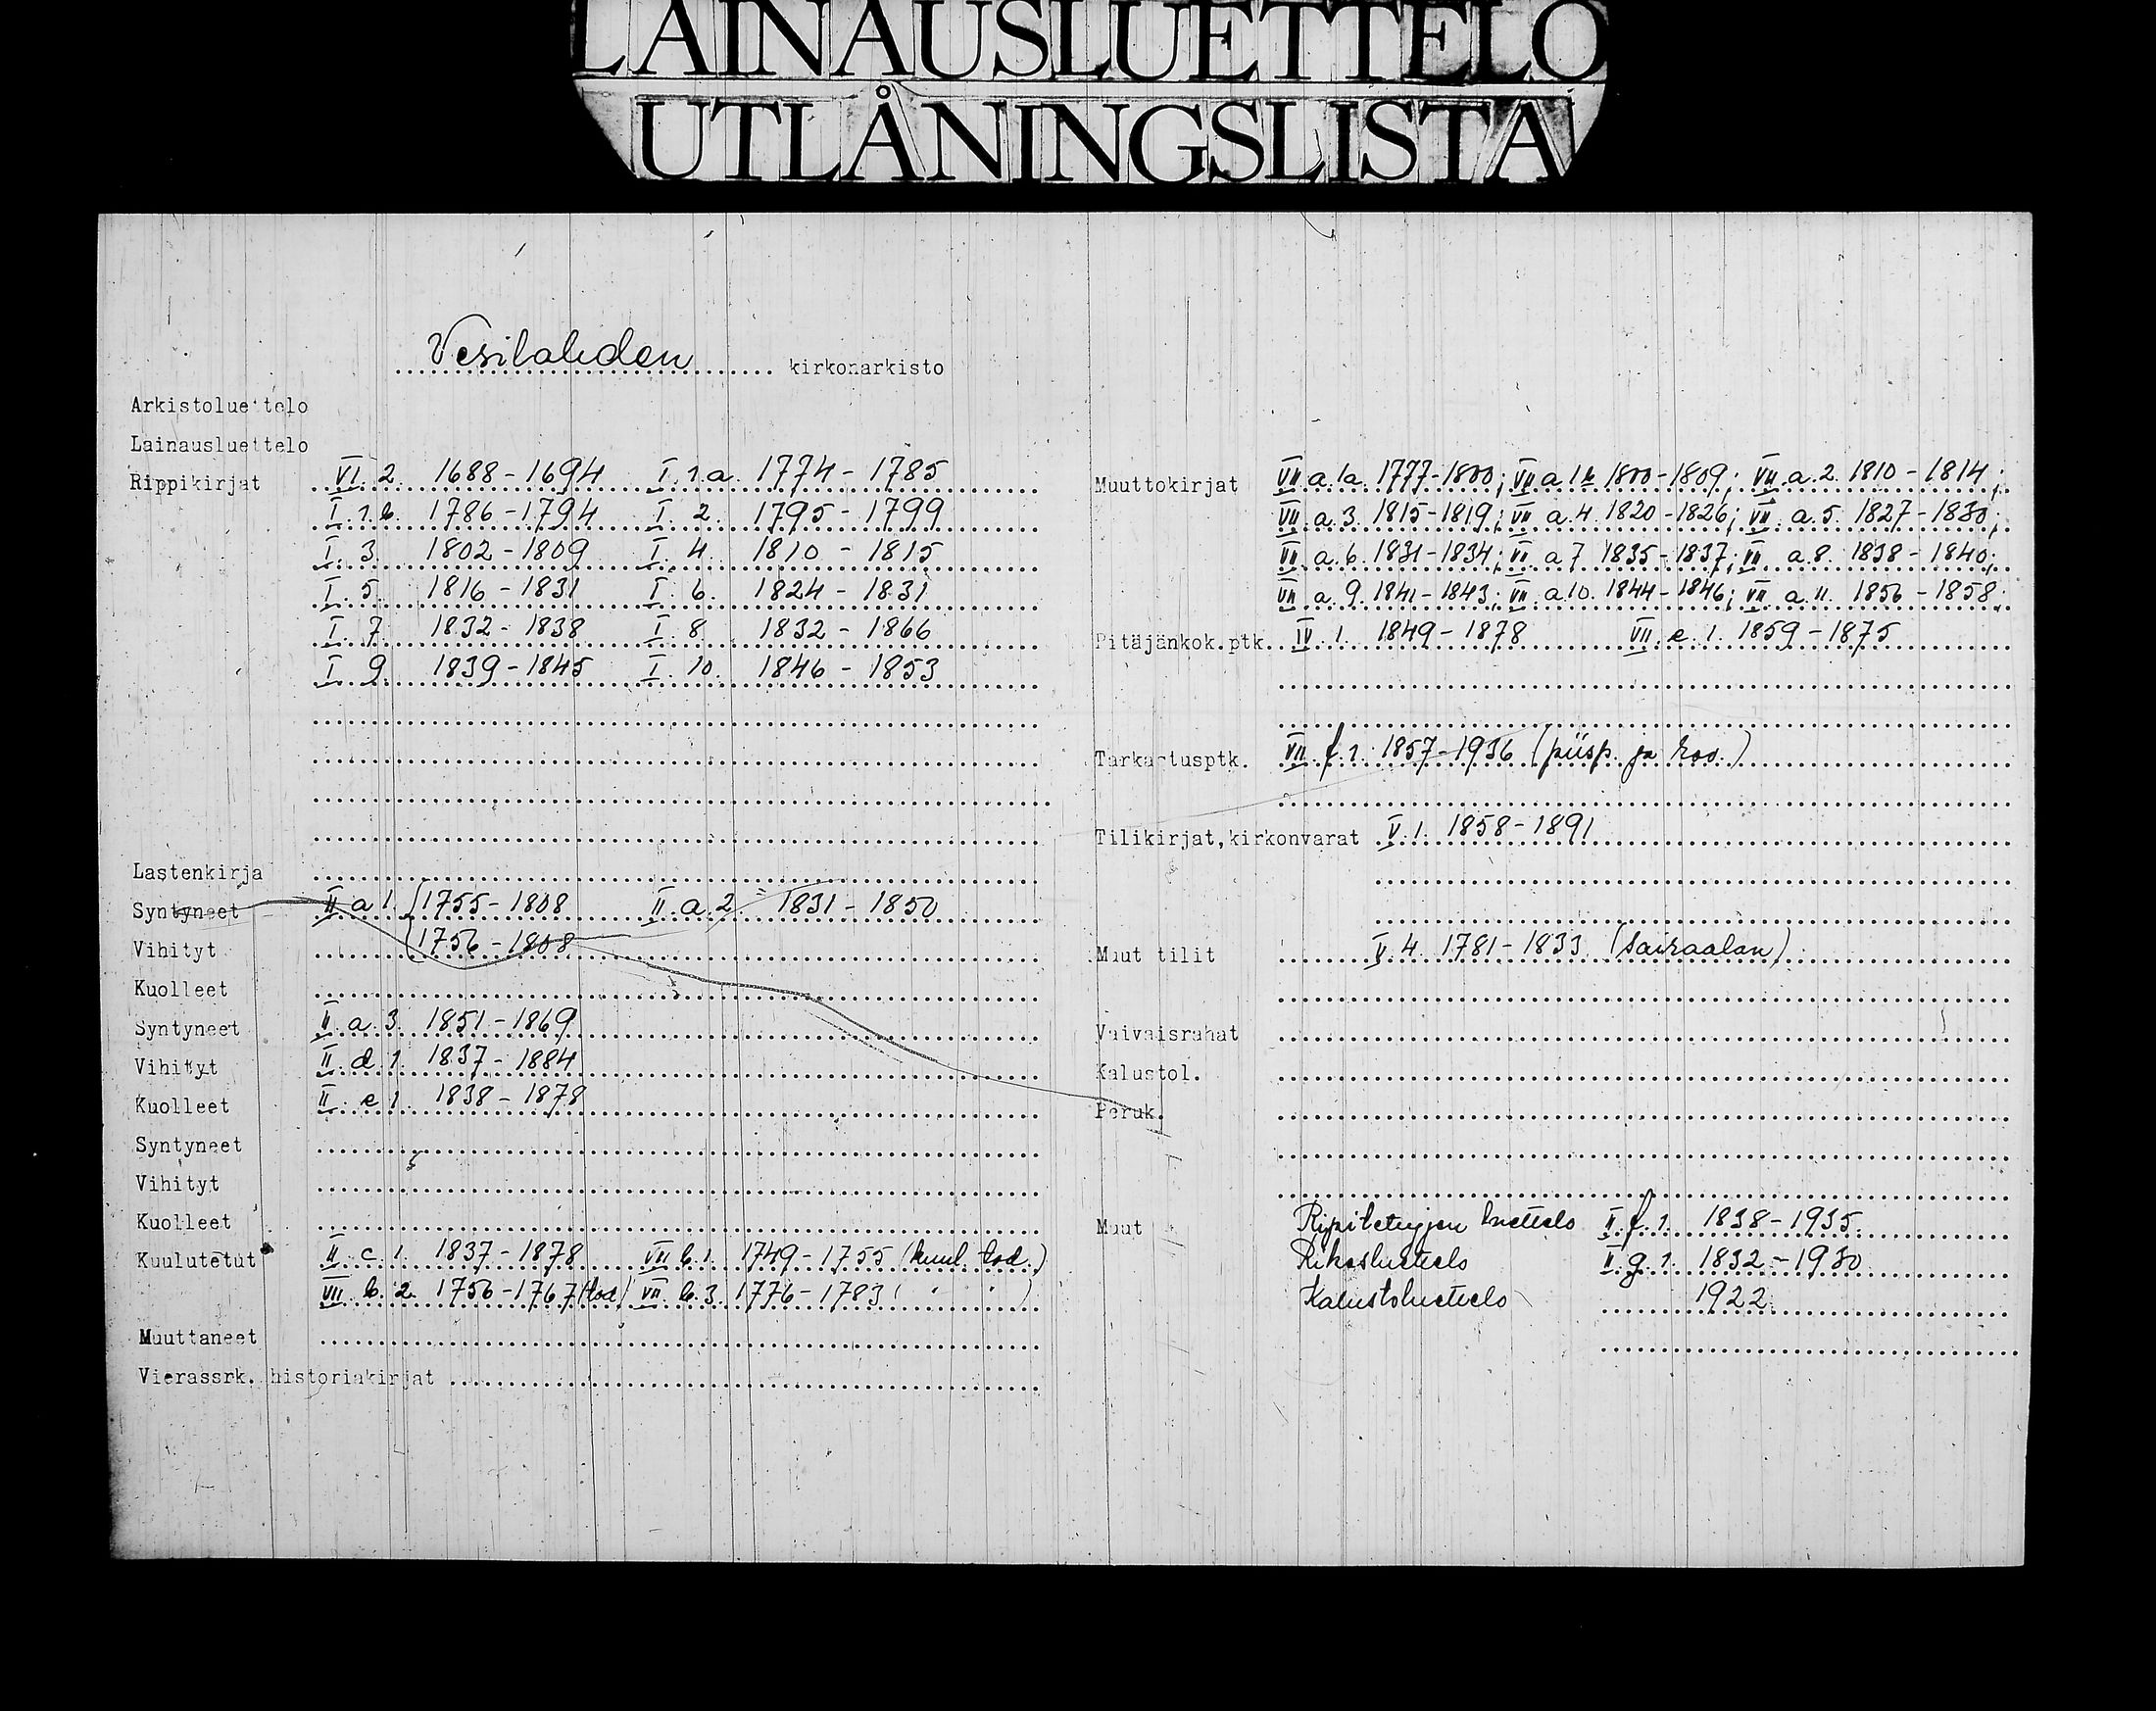 LAINAUSLUETTELO
UTLÅNINGSLISTA
Vesilahden kirkonarkisto
Arkistoluettelo
Lainausluettelo
Rippikirjat VI. 2. 1688-1694 I. 1.a. 1774-1785
I. 1.b. 1786-1794 I. 2. 1795-1799
I. 3. 1802-1809 I. 4. 1810-1815
I. 5. 1816-1831 I. 6. 1824-1831
I. 7. 1832-1838 I. 8. 1832-1866
I. 9. 1839-1845 I. 10. 1846-1853
Lastenkirja
Syntyneet II a 1. 1755-1808 II. a. 2. 1831-1850
Vihityt 1756-1808
Kuolleet
Syntyneet II. a. 3. 1851-1869
Vihityt II. d. 1. 1837-1884
Kuolleet II. e 1. 1838-1878
Syntyneet
Vihityt
Kuolleet
Kuulutetut II. c. 1. 1837-1878 VII b. 1. 1749-1755 (kuul. tod.)
VII. b. 2. 1756-1767 (tod) VII. b. 3. 1776-1783 ( " " )
Muuttaneet
Vierassrk. historiakirjat
Muuttokirjat VII. a. 1a. 1777-1800; VII a 1b 1800-1809; VII. a. 2. 1810-1814;
VII. a. 3. 1815-1819; VII a. 4. 1820-1826; VII. a. 5. 1827-1830;
VII. a. 6. 1831-1834; VII. a 7 1835-1837; VII. a. 8. 1838-1840;
VII. a. 9. 1841-1843; VII. a. 10. 1844-1846; VII. a. 11. 1856-1858;
Pitäjänkok.ptk. IV. 1. 1849-1878 VII. e. 1. 1859-1875
Tarkastusptk. VII. f. 1. 1857-1936 (piisp. ja rov.)
Tilikirjat,kirkonvarat V. 1. 1858-1891
Muut tilit V. 4. 1781-1833 (Sairaalan)
Vaivaisrahat
Kalustol.
Peruk.
Muut luettelo II. f. 1. 1838-1935.
Rikosluettelo II. g. 1. 1832-1930
Kalustoluettelo 1922